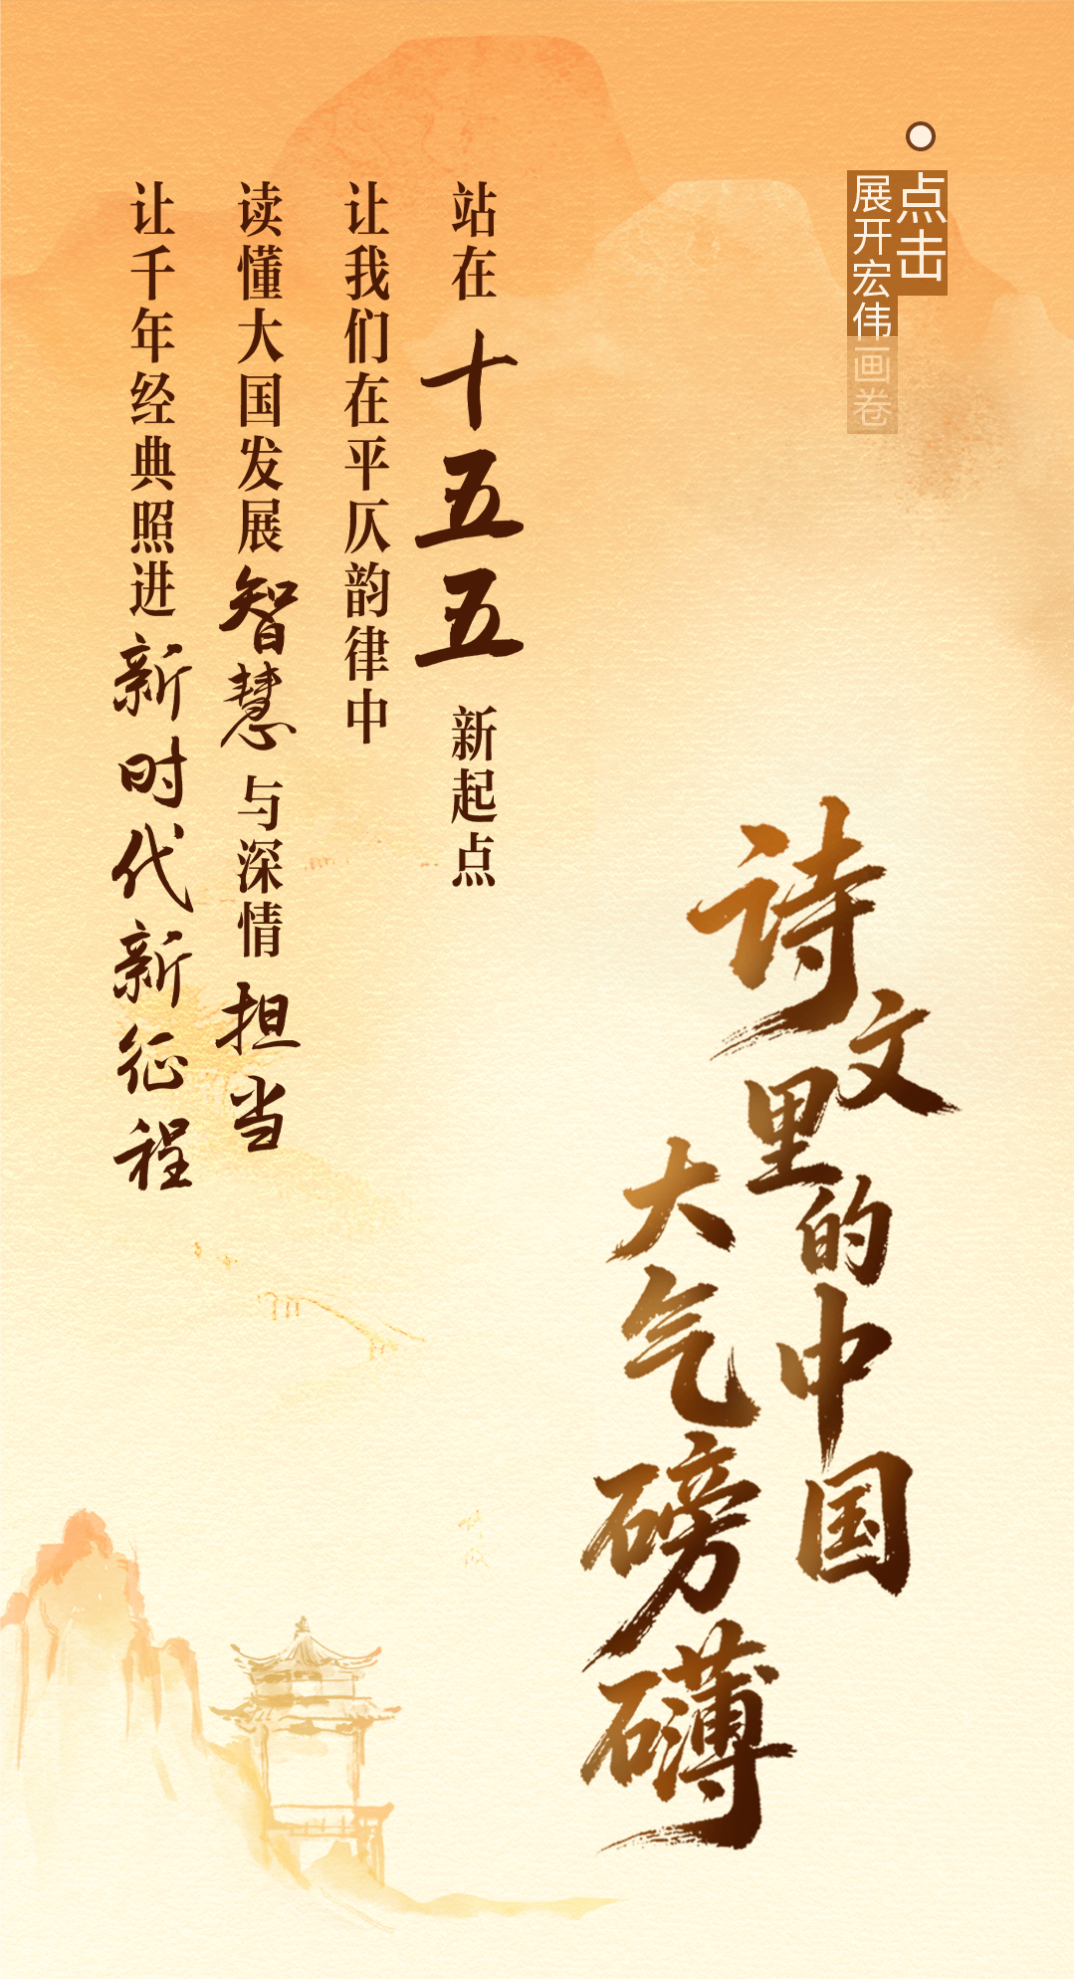 点击
展开宏伟画卷
诗文里的中国
大气磅礴
站在十五五新起点
让我们在平仄韵律中
读懂大国发展智慧与深情担当
让千年经典照进新时代新征程